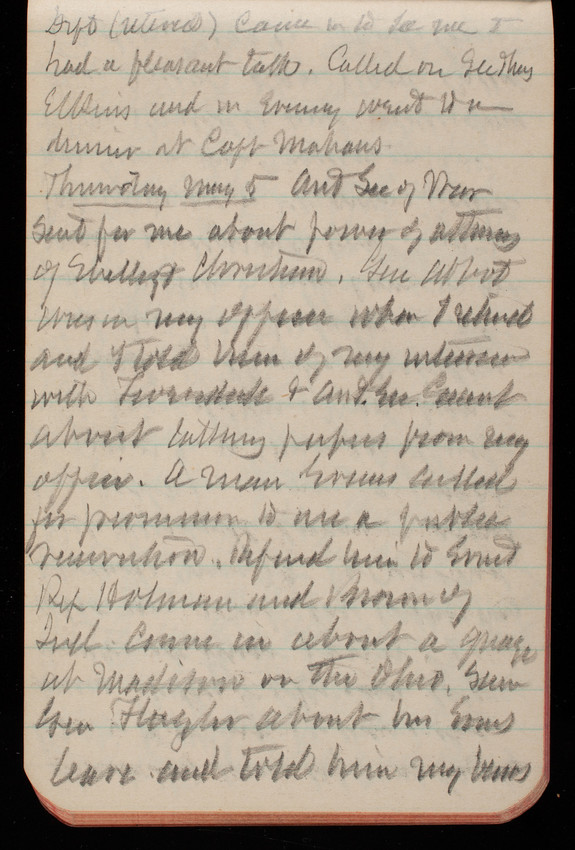 Dept (retired) came in to see me &
had a pleasant talk. Called on
Elkins and in Evening went to a
dinner at Capt Mahans
Thursday May 5 Asst Sec of War
sent for me about power of attorney
of Christian. Gen Abbot
was in my office when I returned
and I told him of my interview
with & Asst. Sec. Grant
about letting papers from my
office. A man Evans called
for permission to use a public
reservation. Referred him to
Rep Holman and Brown of
Ind. came in about a guage
at Madison on the Ohio. Saw
Gen Flagler about
leave and told him my views